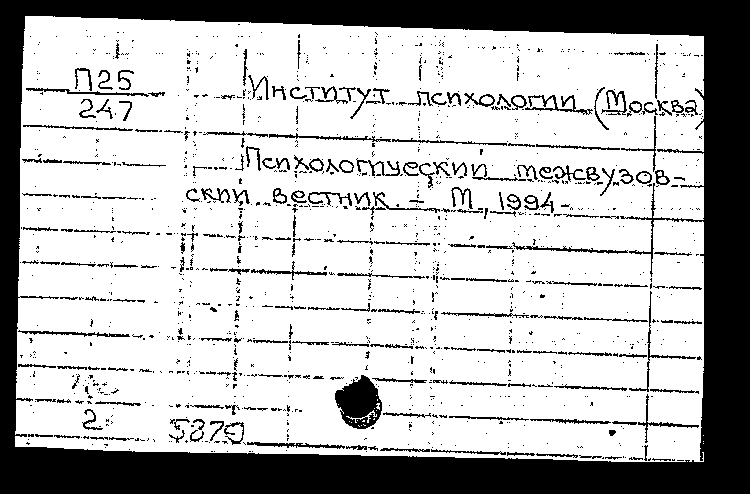 П25
247
Институт психологии (Москва)
Психологический межвузов-
ский вестник. – М., 1994-
2
5870